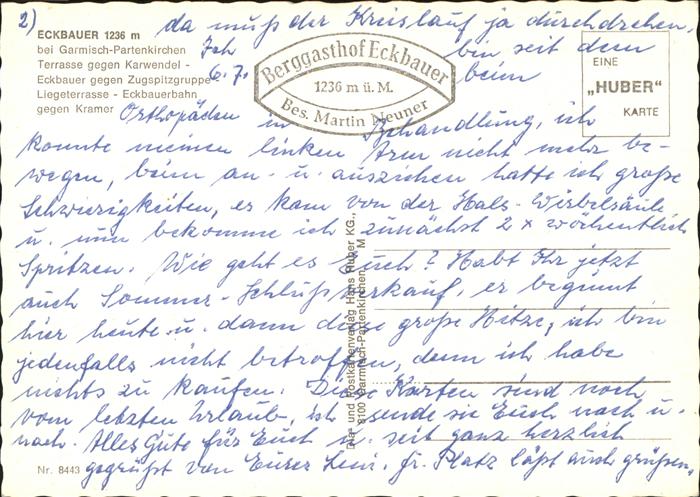 2)
da muß der Kreislauf ja durchdrehen.
ECKBAUER 1236 m
bei Garmisch-Partenkirchen
Terrasse gegen Karwendel -
Eckbauer gegen Zugspitzgruppe -
Liegeterrasse - Eckbauerbahn
gegen Kramer
Berggasthof Eckbauer
1236 m ü. M.
Bes. Martin Neuner
EINE
„HUBER“
KARTE
Ich bin seit dem
6.7. beim
Orthopäden in Behandlung, ich
konnte meinen linken Arm nicht mehr be-
wegen, beim an- u. ausziehen hatte ich große
Schwierigkeiten, es kam von der Hals-Wirbelsäule
u. nun bekomme ich zunächst 2 x wöchentlich
Spritzen. Wie geht es Euch? Habt Ihr jetzt
auch Sommer-Schlußverkauf, er beginnt
hier heute u. dann diese große Hitze, ich bin
jedenfalls nicht betroffen, denn ich habe
nichts zu kaufen. Diese Karten sind noch
vom letzten Urlaub, ich sende sie Euch nach u.
nach. Alles Gute für Euch u. seit ganz herzlich
gegrüßt von Eurer Leni. Fr. Platz läßt auch grüßen.
Nr. 8443
und Postkartenverlag Hans Huber KG.,
8100 Garmisch-Partenkirchen
M